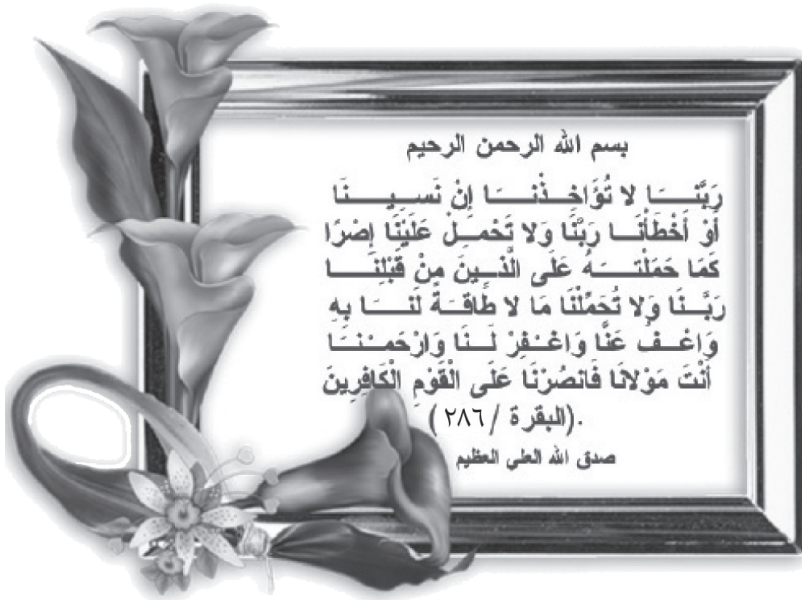 بسم الله الرحمن الرحيم
رَبَّنَا لا تُؤَاخِذْنَا إِنْ نَسِينَا
أَوْ أَخْطَأْنَا رَبَّنَا وَلا تَحْمِلْ عَلَيْنَا إِصْرًا
كَمَا حَمَلْتَهُ عَلَى الَّذِينَ مِنْ قَبْلِنَا
رَبَّنَا وَلا تُحَمِّلْنَا مَا لا طَاقَةَ لَنَا بِهِ
وَاعْفُ عَنَّا وَاغْفِرْ لَنَا وَارْحَمْنَا
أَنْتَ مَوْلانَا فَانصُرْنَا عَلَى الْقَوْمِ الْكَافِرِينَ
.(البقرة / ٢٨٦)
صدق الله العلي العظيم